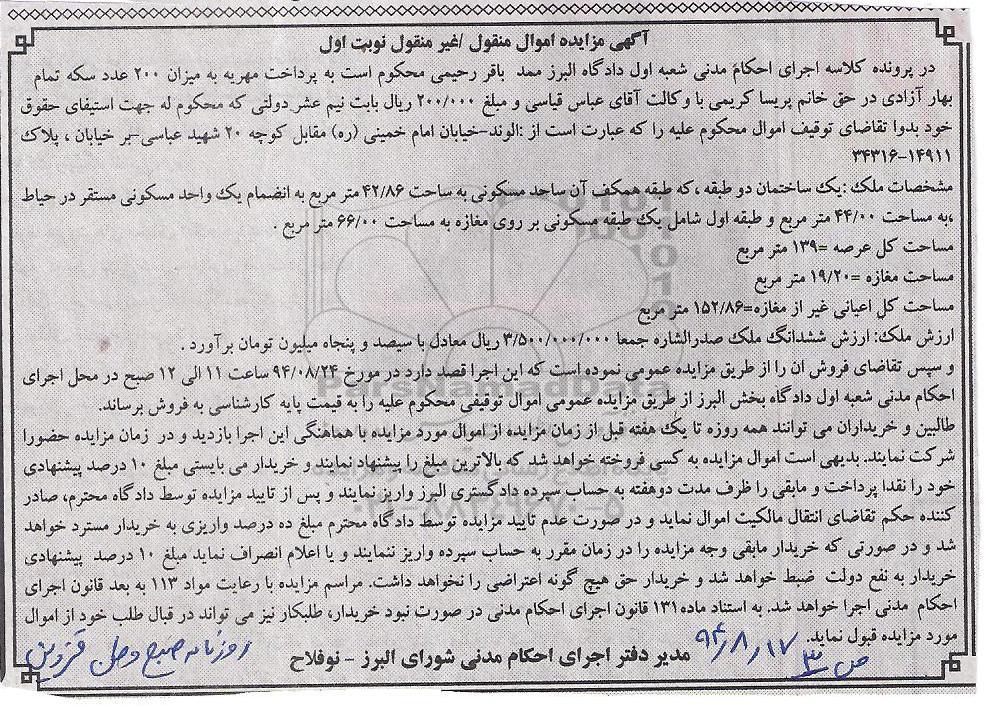 آگهی مزایده اموال منقول /غیر منقول نوبت اول
در پرونده کلاسه اجرای احکام مدنی شعبه اول دادگاه البرز ممد باقر رحیمی محکوم است به پرداخت مهریه به میزان ۲۰۰ عدد سکه تمام
بهار آزادی در حق خانم پریسا کریمی با وکالت آقای عباس قیاسی و مبلغ ۲۰۰/۰۰۰ ریال بابت نیم عشر دولتی که محکوم له جهت استیفای حقوق
خود بدوا تقاضای توقیف اموال محکوم علیه را که عبارت است از :الوند-خیابان امام خمینی (ره) مقابل کوچه ۲۰ شهید عباسی-بر خیابان ، پلاک
۱۴۹۱۱-۳۴۳۱۶
مشخصات ملک :یک ساختمان دو طبقه ،که طبقه همکف آن ساحد مسکونی به ساحت ۴۲/۸۶ متر مربع به انضمام یک واحد مسکونی مستقر در حیاط
،به مساحت ۴۴/۰۰ متر مربع و طبقه اول شامل یک طبقه مسکونی بر روی مغازه به مساحت ۶۶/۰۰ متر مربع .
مساحت کل عرصه =۱۳۹ متر مربع
مساحت مغازه =۱۹/۲۰ متر مربع
مساحت کل اعیانی غیر از مغازه=۱۵۲/۸۶ متر مربع
ارزش ملک: ارزش ششدانگ ملک صدرالشاره جمعا ۳/۵۰۰/۰۰۰/۰۰۰ ریال معادل با سیصد و پنجاه میلیون تومان برآورد .
و سپس تقاضای فروش ان را از طریق مزایده عمومی نموده است که این اجرا قصد دارد در مورخ ۹۴/۰۸/۲۴ ساعت ۱۱ الی ۱۲ صبح در محل اجرای
احکام مدنی شعبه اول دادگاه بخش البرز از طریق مزایده عمومی اموال توقیفی محکوم علیه را به قیمت پایه کارشناسی به فروش برساند.
طالبین و خریداران می توانند همه روزه تا یک هفته قبل از زمان مزایده از اموال مورد مزایده با هماهنگی این اجرا بازدید و در زمان مزایده حضورا
شرکت نمایند. بدیهی است اموال مزایده به کسی فروخته خواهد شد که بالاترین مبلغ را پیشنهاد نمایند و خریدار می بایستی مبلغ ۱۰ درصد پیشنهادی
خود را نقدا پرداخت و مابقی را ظرف مدت دوهفته به حساب سپرده دادگستری البرز واریز نمایند و پس از تایید مزایده توسط دادگاه محترم، صادر
کننده حکم تقاضای انتقال مالکیت اموال نماید و در صورت عدم تایید مزایده توسط دادگاه محترم مبلغ ده درصد واریزی به خریدار مسترد خواهد
شد و در صورتی که خریدار مابقی وجه مزایده را در زمان مقرر به حساب سپرده واریز ننمایند و یا اعلام انصراف نماید مبلغ ۱۰ درصد پیشنهادی
خریدار به نفع دولت ضبط خواهد شد و خریدار حق هیچ گونه اعتراضی را نخواهد داشت. مراسم مزایده با رعایت مواد ۱۱۳ به بعد قانون اجرای
احکام مدنی اجرا خواهد شد. به استناد ماده۱۳۱ قانون اجرای احکام مدنی در صورت نبود خریدار، طلبکار نیز می تواند در قبال طلب خود از اموال
مورد مزایده قبول نماید.
مدیر دفتر اجرای احکام مدنی شورای البرز - نوفلاح
روزنامه صبح وطن قزوین
۹۴/۸/۱۷
ص ۳
ParsNamadData